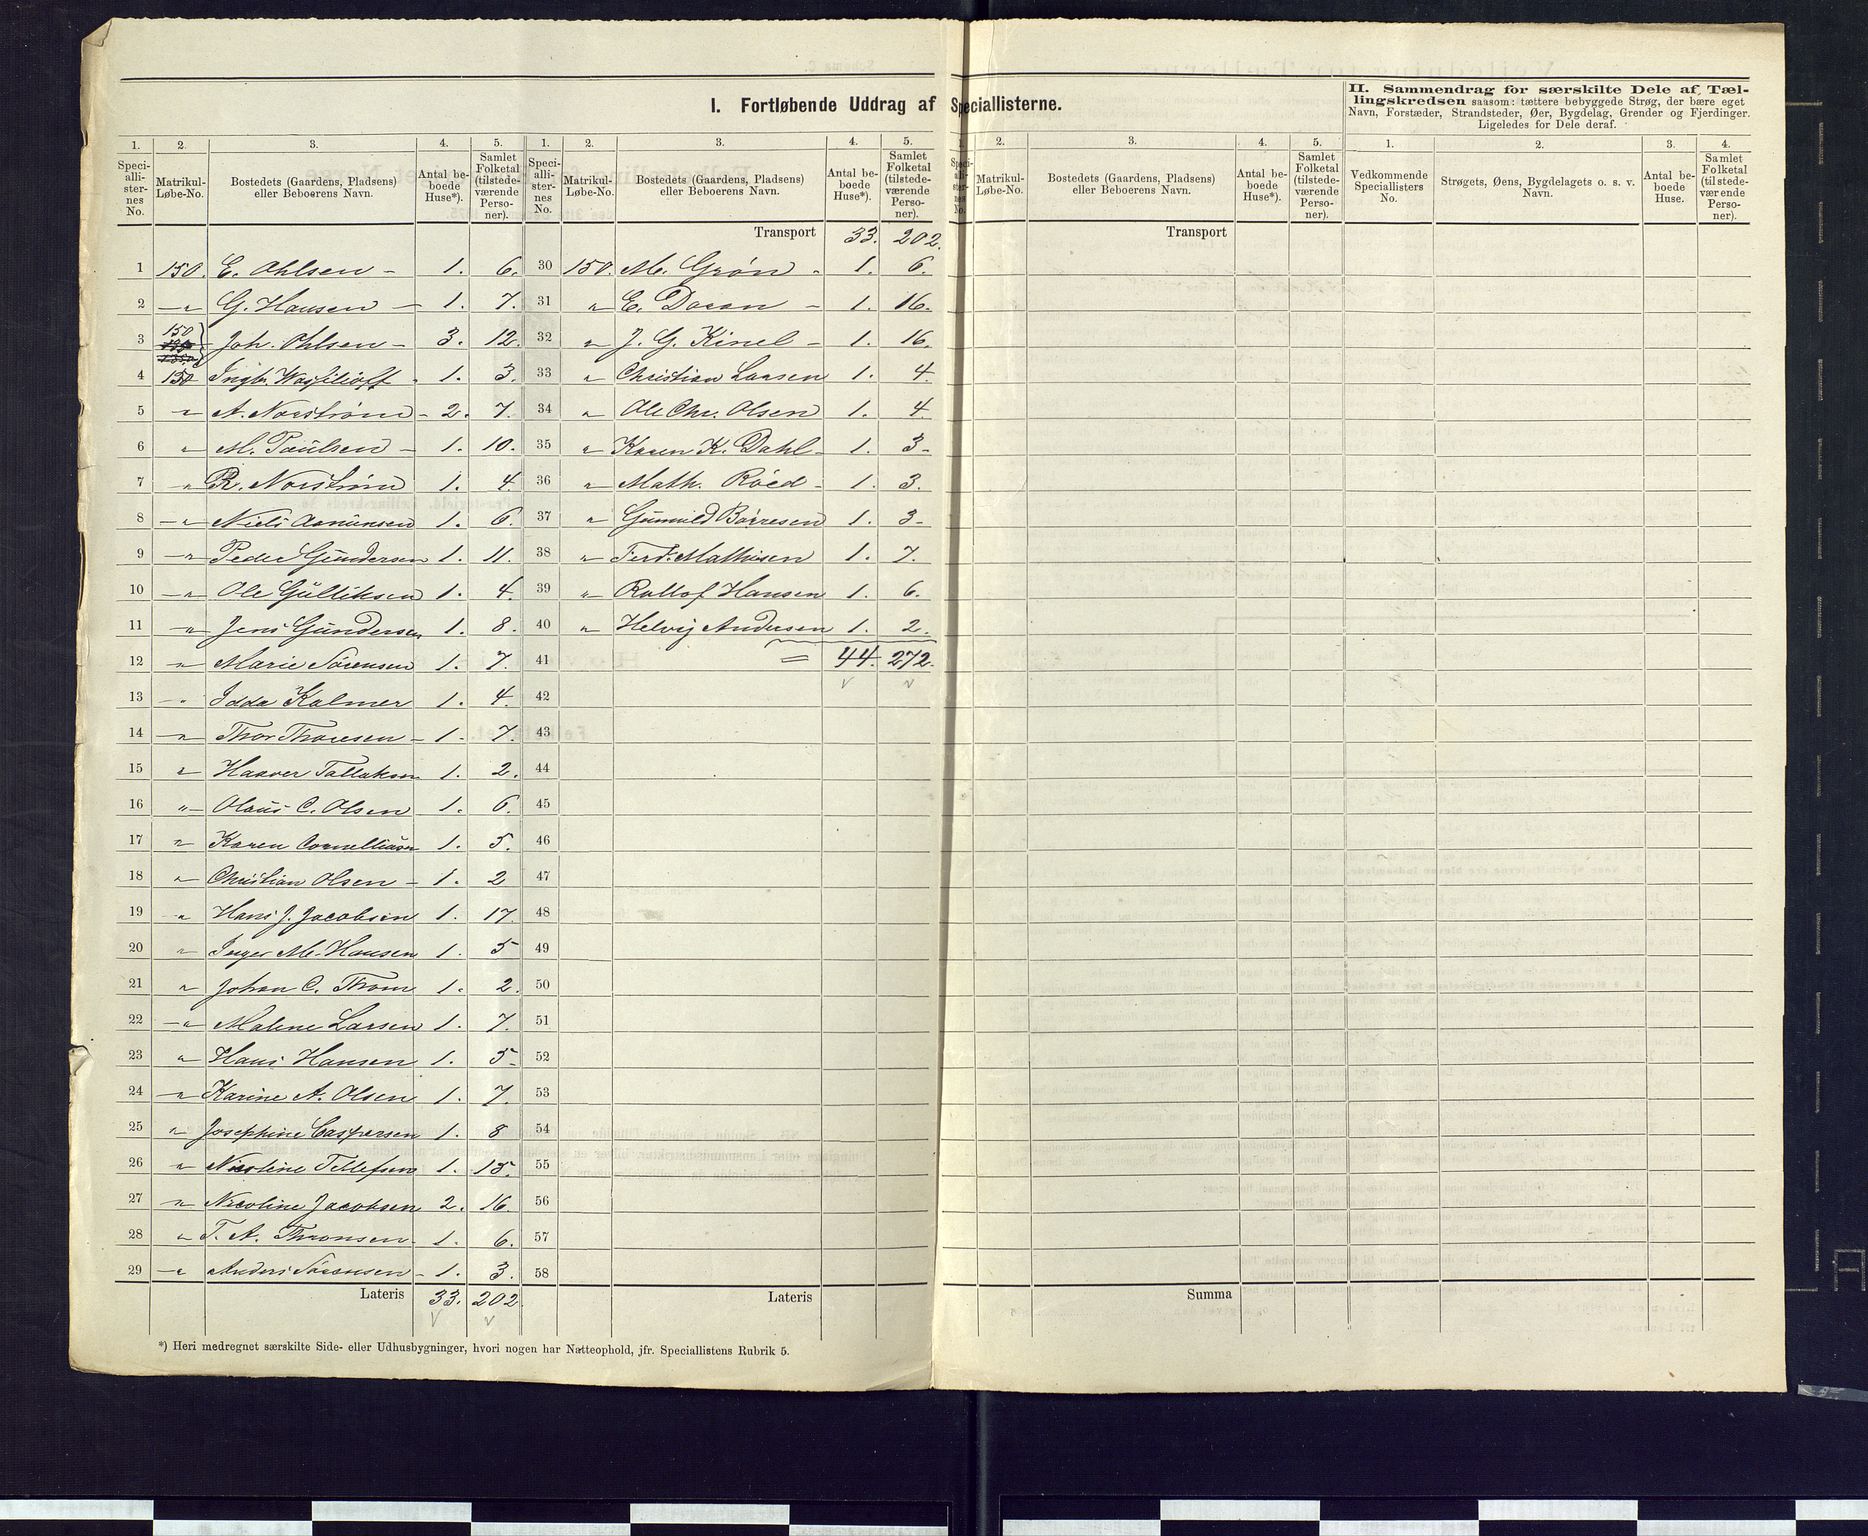 I. Fortløbende Uddrag af Speciallisterne.
II. Sammendrag for særskilte Dele af Tællingskredsen saasom: tættere bebyggede Strøg, der bære eget
Navn, Forstæder, Strandsteder, Øer, Bygdelag, Grender og Fjerdinger.
Ligeledes for Dele deraf.
1. 2. 3. 4. 5. 1. 2. 3. 4. 5. 1. 2. 3. 4. 5. 1. 2. 3. 4.
Speciallisternes No. Matrikul-Løbe-No. Bostedets (Gaardens, Pladsens) eller Beboerens Navn. Antal beboede Huse*). Samlet Folketal (tilstedeværende Personer).
Speciallisternes No. Matrikul-Løbe-No. Bostedets (Gaardens, Pladsens) eller Beboerens Navn. Antal beboede Huse*). Samlet Folketal (tilstedeværende Personer).
Matrikul-Løbe-No. Bostedets (Gaardens, Pladsens) eller Beboerens Navn. Antal beboede Huse*). Samlet Folketal (tilstedeværende Personer).
Vedkommende Speciallisters No. Strøgets, Øens, Bygdelagets o. s. v. Navn. Antal beboede Huse. Samlet Folketal (tilstedeværende Personer).
1 150. E. Ohlsen - 1. 6.
2 -"- G. Hansen - 1. 7.
3 150 Joh. Ohlsen - 3. 12.
4 150 Ingbr. Wasilioff - 1. 3.
5 " A. Norstrøm - 2. 7.
6 " M. Paulsen - 1. 10.
7 " R. Norstrøm 1. 4.
8 " Niels Asmunsen 1. 6.
9 " Peder Gundersen 1. 11.
10 " Ole Gulliksen 1. 4.
11 " Jens Gundersen 1. 8.
12 " Marie Sørensen 1. 7.
13 " Idda Kalmer 1. 4.
14 " Thor Thoresen - 1. 7.
15 " Haaver Tallaksen 1. 2.
16 " Olaus C. Olsen 1. 6.
17 " Karen Corneliusen 1. 5.
18 " Christian Olsen - 1. 2
19 " Hans J. Jacobsen 1. 17.
20 " Inger M. Hansen 1. 5
21 " Johan C. Thom 1. 2.
22 " Malene Larsen 1. 7.
23 " Hans Hansen 1. 5-
24 " Karine A. Olsen 1. 7.
25 " Josephine Caspersen 1. 8
26 " Nicoline Tellefsen 1. 15.
27 " Nicoline Jacobsen 2. 16.
28 " T. A. Thronsen 1. 6.
29 " Anders Sørensen - 1. 3.
Lateris 33. 202.
Transport 33. 202.
30 150. M. Grøn - 1. 6.
31 " E. Doran - 1. 16.
32 " J. G. Kinel - 1. 16.
33 " Christian Larsen 1. 4.
34 " Ole Chr. Olsen 1. 4.
35 " Karen K. Dahl - 1. 3-
36 " Math. Röed - 1. 3.
37 " Gunnild Børresen 1. 3-
38 " Ferd. Mathisen 1. 7.
39 " Rollof Hansen 1. 6.
40 " Helvig Andersen 1. 2.
41 = 44. 272.
42
43
44
45
46
47
48
49
50
51
52
53
54
55
56
57
58
Lateris
Transport
Summa
*) Heri medregnet særskilte Side- eller Udhusbygninger, hvori nogen har Natteophold, jfr. Speciallistens Rubrik 5.